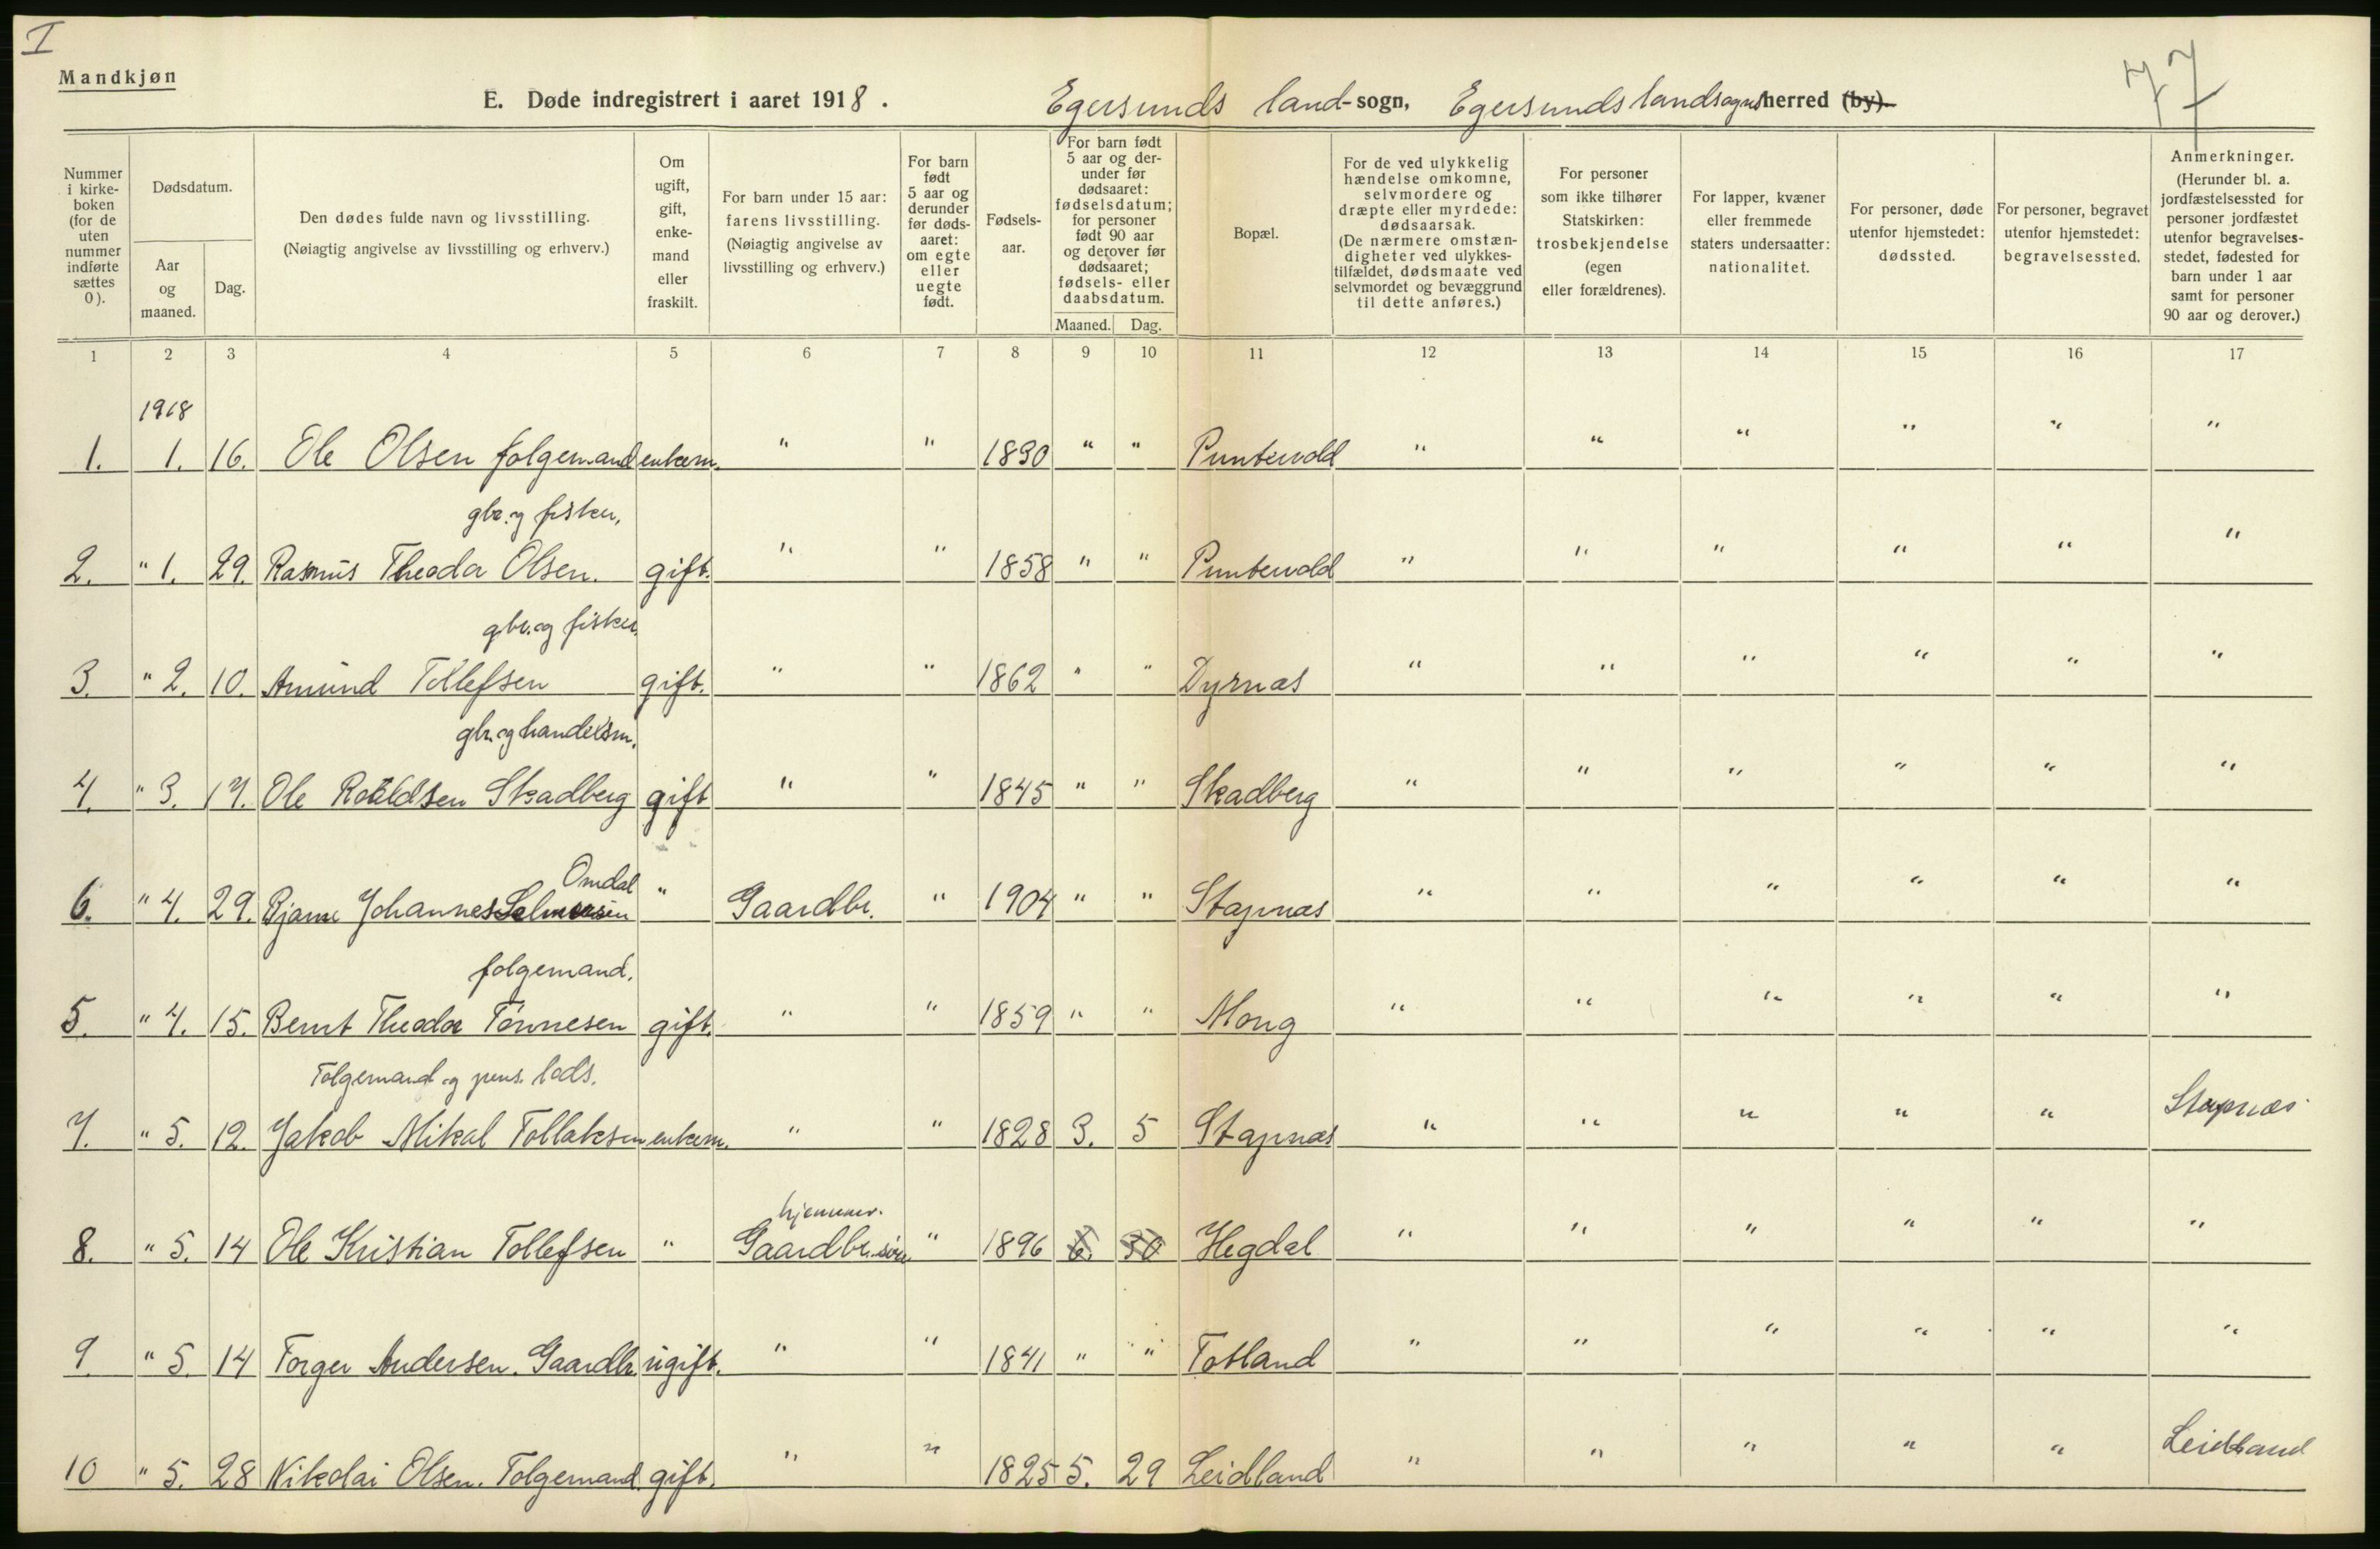 I
Mandkjøn
77
E. Døde indregistrert i aaret 1918. Egersunds land-sogn, Egersunds landsogns herred (by).
Nummer i kirkeboken (for de uten nummer indførte sættes 0).
Dødsdatum.
Aar og maaned.
Dag.
Den dødes fulde navn og livsstilling.
(Nøiagtig angivelse av livsstilling og erhverv.)
Om ugift, gift, enkemand eller fraskilt.
For barn under 15 aar: farens livsstilling.
(Nøiagtig angivelse av livsstilling og erhverv.)
For barn født 5 aar og derunder før dødsaaret: om egte eller uegte født.
Fødselsaar.
For barn født 5 aar og derunder før dødsaaret: fødselsdatum; for personer født 90 aar og derover før dødsaaret; fødsels- eller daabsdatum.
Maaned. Dag.
Bopæl.
For de ved ulykkelig hændelse omkomne, selvmordere og dræpte eller myrdede: dødsaarsak.
(De nærmere omstændigheter ved ulykkestilfældet, dødsmaate ved selvmordet og bevæggrund til dette anføres.)
For personer som ikke tilhører Statskirken: trosbekjendelse (egen eller forældrenes).
For lapper, kvæner eller fremmede staters undersaatter: nationalitet.
For personer, døde utenfor hjemstedet: dødssted.
For personer, begravet utenfor hjemstedet: begravelsessted.
Anmerkninger.
(Herunder bl. a. jordfæstelsessted for personer jordfæstet utenfor begravelsesstedet, fødested for barn under 1 aar samt for personer 90 aar og derover.)
1 2 3 4 5 6 7 8 9 10 11 12 13 14 15 16 17
1918
1. 1. 16. Ole Olsen folgemand enkem. " " 1830 " " Puntervold " " " " " "
gbr. og fisker,
2. " 1. 29. Rasmus Theodor Olsen. gift. " " 1858 " " Puntervold " " " " " "
gbr. og fisker.
3. " 2. 10. Amund Tollefsen gift. " " 1862 " " Dyrnæs " " " " " "
gbr. og handelsm.
4. " 3. 17. Ole Skadberg gift " " 1845 " " Skadberg " " " " " "
Omdal
6. " 4. 29. Bjarne Johannes " Gaardbr. " 1904 " " Stapnæs " " " " " "
folgemand.
5. " 4. 15. Bernt Theodor Tønnesen gift. " " 1859 " " Mong " " " " " "
Folgemand og pens. lods.
7. " 5. 12. Jakob Mikal Tollaksen enkem. " " 1828 3. 5 Stapnæs " " " " " Stapnæs
hjemmev.
8. " 5. 14 Ole Kristian Tollefsen " Gaardbr. søn " 1896 6. 30 Hegdal " " " " " "
9. " 5. 14 Torger Andersen. Gaardbr. ugift. " " 1841 " " Totland " " " " " "
10 " 5. 28 Nikolai Olsen. Folgemand. gift. " " 1825 5. 29 Leidland " " " " " Leidland